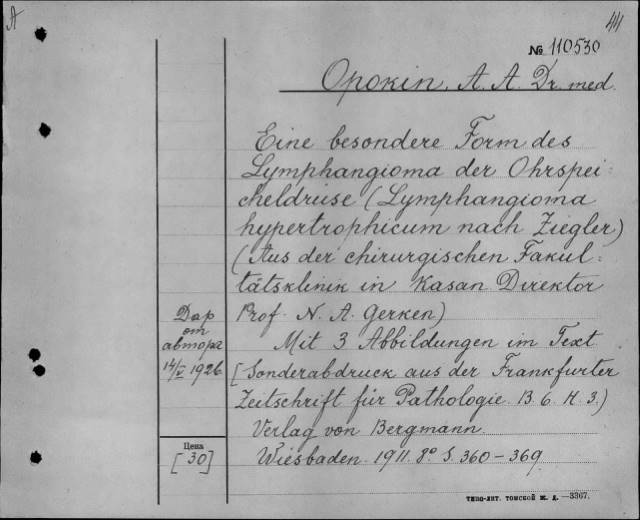 A
44
№ 110530
Opokin. A. A. Dr. med.
Eine besondere Form des
Lymphangioma der Ohrspei-
cheldrüse (Lymphangioma
hypertrophicum nach Ziegler)
(Aus der chirurgischen Fakul-
tätsklinik in Kasan. Direktor
Prof. N. A. Gerken)
Mit 3 Abbildungen im Text
[Sonderabdruck aus der Frankfurter
Zeitschrift für Pathologie. B. 6. H. 3.)
Verlag von Bergmann.
Wiesbaden. 1911. 8° S. 360-369
Дар
от
автора
14/V 1926
Цена
[30]
ТИПО-ЛИТ. ТОМСКОЙ Ж. Д. —3367.